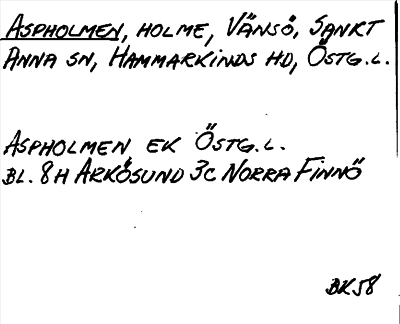 ASPHOLMEN, HOLME, VÄNSÖ, SANKT
ANNA SN, HAMMARKINDS HD, ÖSTG.L.
ASPHOLMEN EK ÖSTG.L.
BL. 8H ARKÖSUND 3C NORRA FINNÖ
BK58